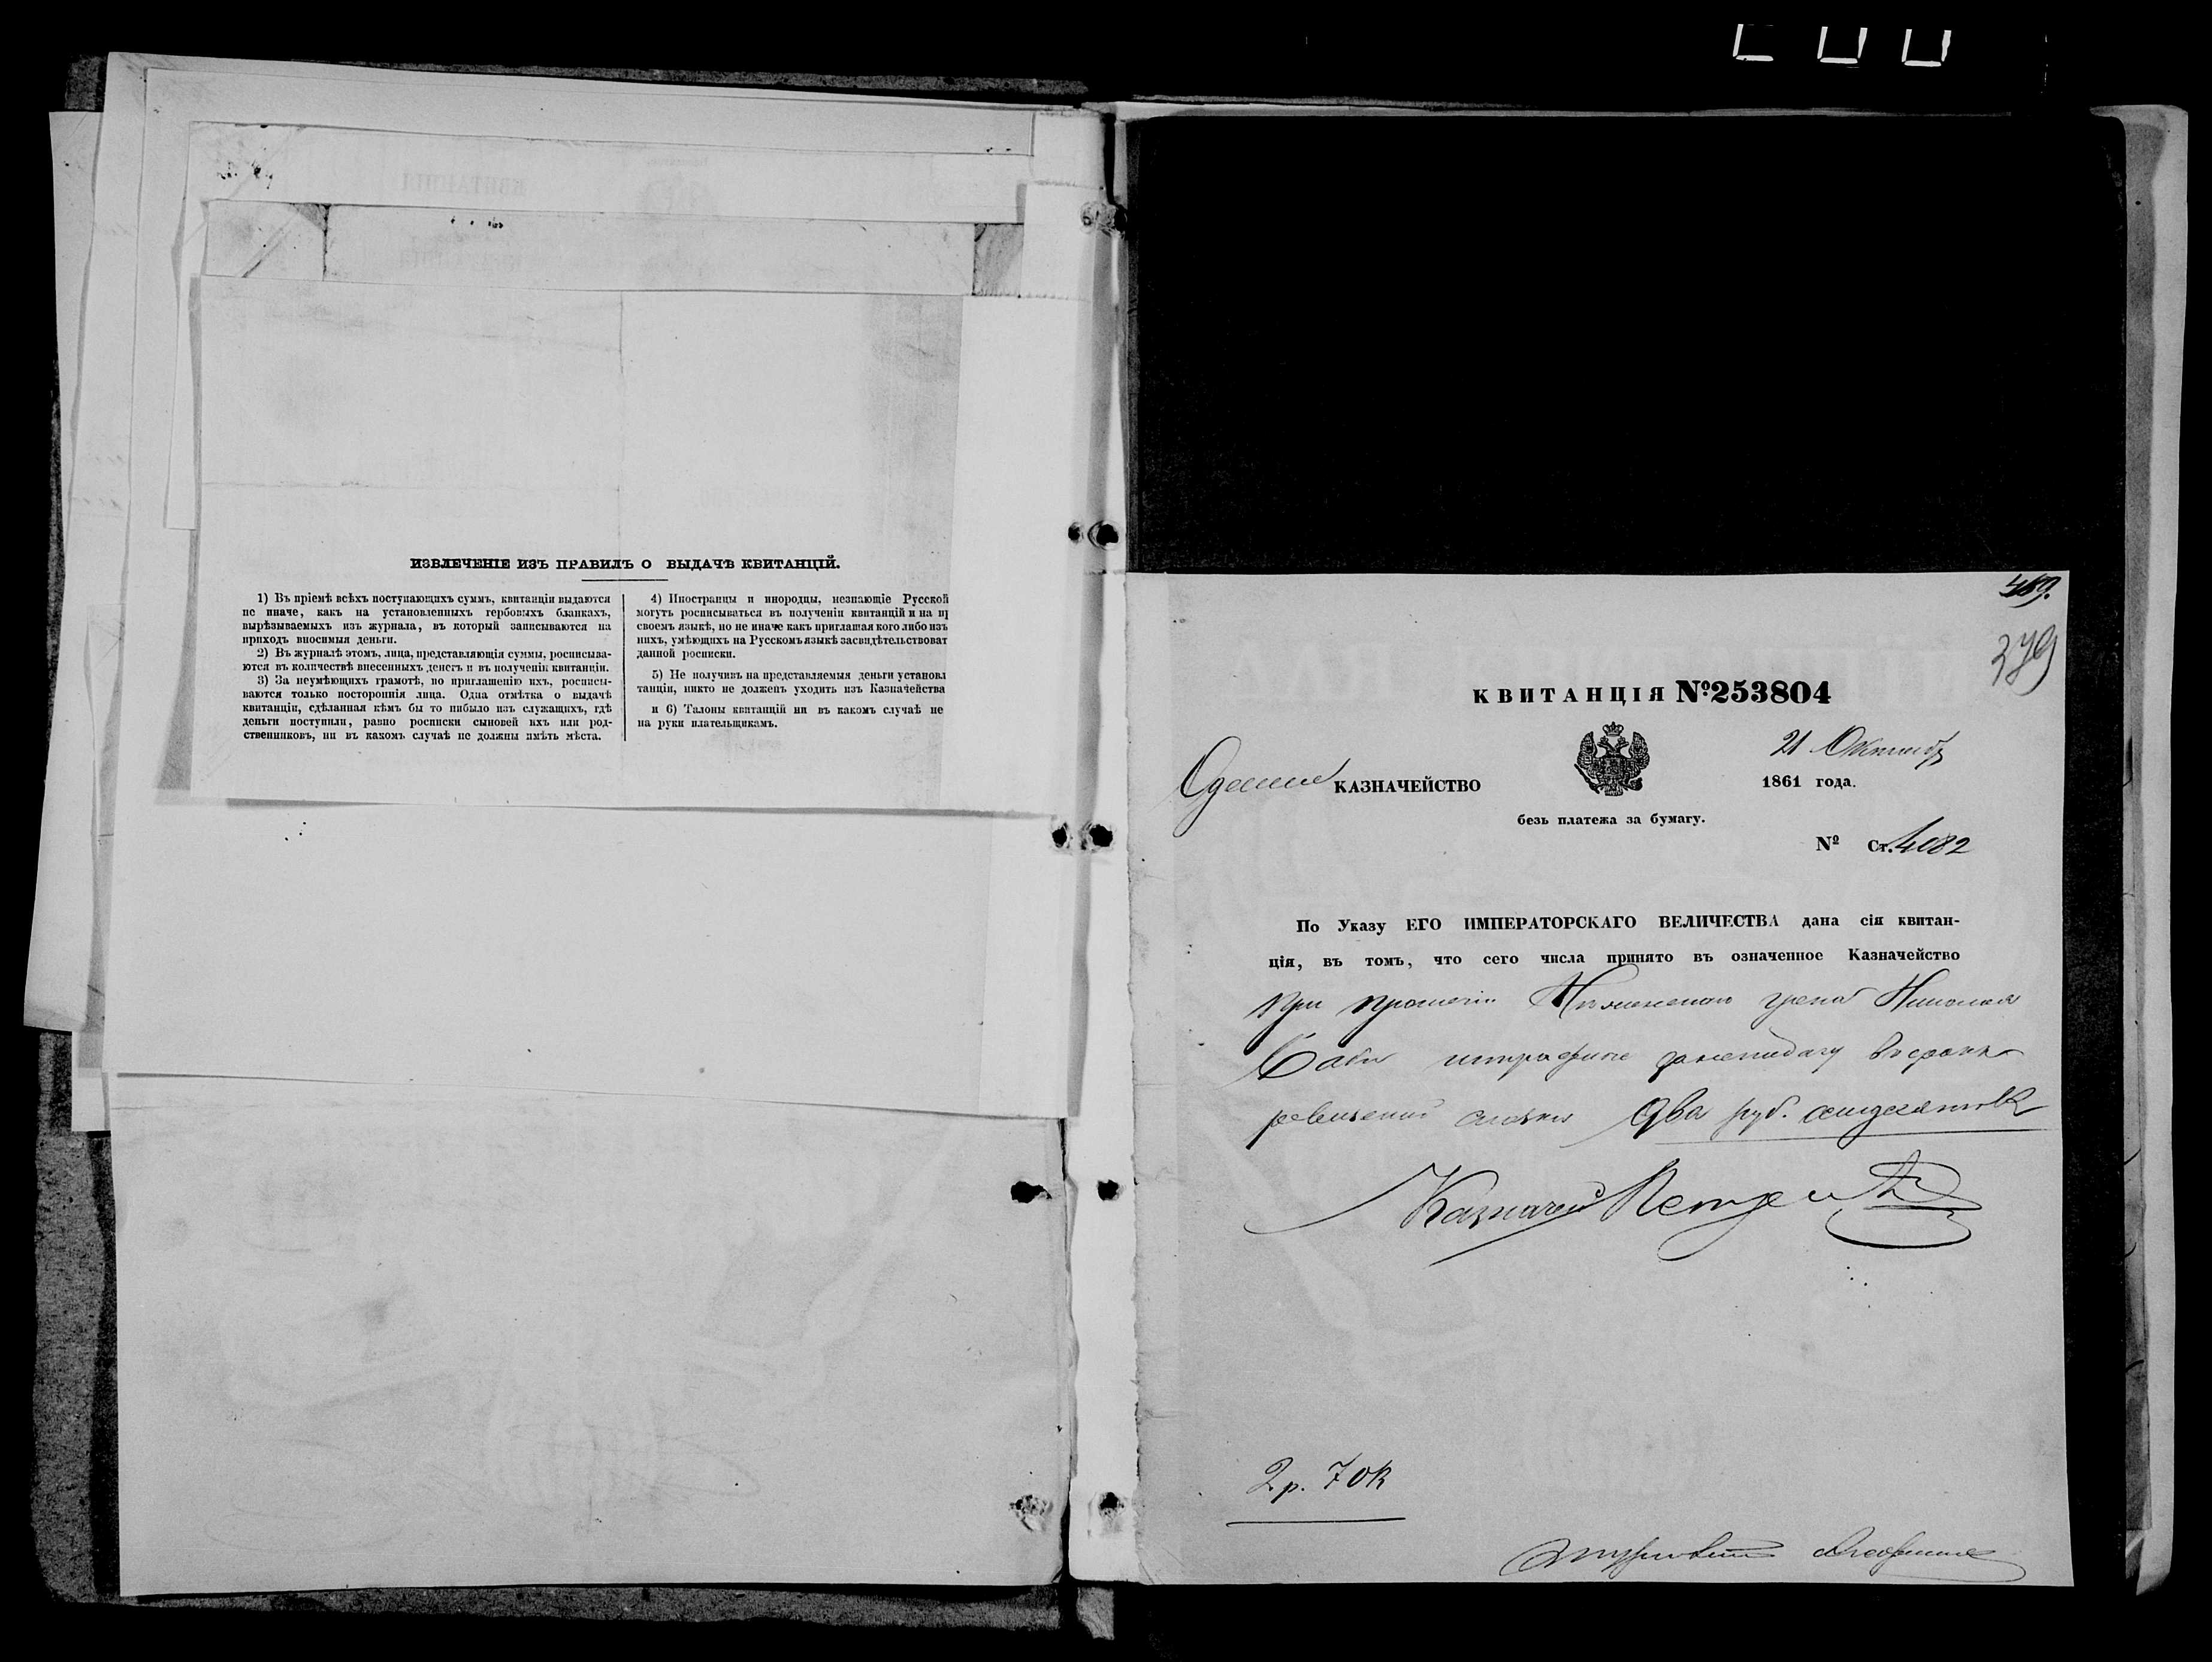 ИЗВЛЕЧЕНІЕ ИЗЪ ПРАВИЛЪ О ВЫДАЧѢ КВИТАНЦІЙ.
1) Въ пріемѣ всѣхъ поступающихъ суммъ, квитанціи выдаются
не иначе, какъ на установленныхъ гербовыхъ бланкахъ,
вырѣзываемыхъ изъ журнала, въ который записываются на
приходъ вносимыя деньги.
2) Въ журналѣ этомъ, лица, представляющія суммы, росписыва-
ются въ количествѣ внесенныхъ денегъ и въ полученіи квитанціи.
3) За неумѣющихъ грамотѣ, по приглашенію ихъ, росписы-
ваются только постороннія лица. Одна отмѣтка о выдачѣ
квитанціи, сдѣланная кѣмъ бы то нибыло изъ служащихъ, гдѣ
деньги поступили, равно росписки сыновей ихъ или род-
ственниковъ, ни въ какомъ случаѣ не должны имѣть мѣста.
4) Иностранцы и инородцы, незнающіе Русской
могутъ росписываться въ полученіи квитанцій и на пр
своемъ языкѣ, но не иначе какъ приглашая кого либо изъ
нихъ, умѣющихъ на Русскомъ языкѣ засвидѣтельствоват
данной росписки.
5) Не получивъ на представляемыя деньги установл
танціи, никто не долженъ уходить изъ Казначейства
и 6) Талоны квитанцій ни въ какомъ случаѣ не
на руки плательщикамъ.
379
КВИТАНЦІЯ №253804
21 Октября
КАЗНАЧЕЙСТВО
1861 года.
безъ платежа за бумагу.
№ Ст. 4082
По Указу ЕГО ИМПЕРАТОРСКАГО ВЕЛИЧЕСТВА дана сія квитан-
ція, въ томъ, что сего числа принято въ означенное Казначейство
при прошеніи Николая
Савы
Два руб.
Казначей
2 р. 70 к